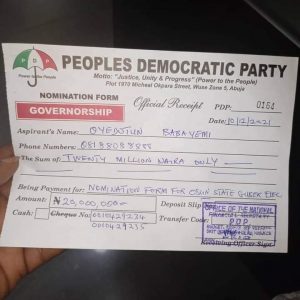 PDP
Power to the People
PEOPLES DEMOCRATIC PARTY
Motto: "Justice, Unity & Progress" (Power to the People)
Plot 1970 Micheal Okpara Street, Wuse Zone 5, Abuja
NOMINATION FORM
Official Receipt
PDP: 0164
GOVERNORSHIP
Date: 10/12/2021
Aspirant's Name: OYEDOTUN BABAYEMI
Phone Numbers:
The Sum of: TWENTY MILLION NAIRA ONLY
Being Payment for: NOMINATION FORM FOR OSUN STATE GUBER ELEC.
Amount: ₦ 20,000,000
Deposit Slip
Cash: Cheque No: 0010429234
0010429235
Transfer Code:
OFFICE OF THE NATIONAL
PDP
Receiving Officer Sign